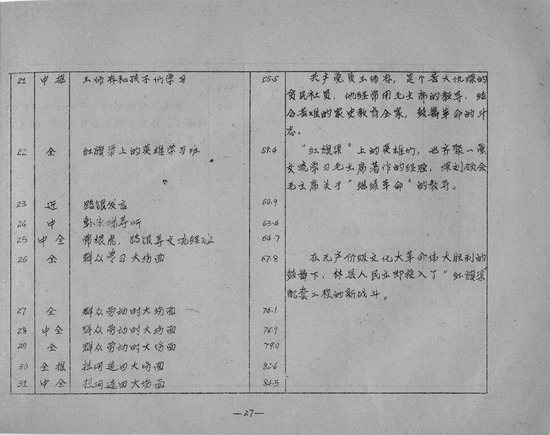 21 中摇 王师存和孩子们学习 55.5 共产党员王师存，是个苦大仇深的
贫民社员，他经常用毛主席的教导，结
合苦难的家史教育全家，鼓舞革命的斗
志。
22 全 红旗渠上的英雄学习班 59.4 “红旗渠”上的英雄们，也齐聚一堂
交流学习毛主席著作的经验，深刻领会
毛主席关于“继续革命”的教导。
23 近 路银发言 60.9
24 中 等听 63.4
25 中全 常根虎，路银等交流经验 64.7
26 全 群众学习大场面 67.8 在无产阶级文化大革命伟大胜利的
鼓舞下，林县人民立即投入了“红旗渠”
配套工程的新战斗。
27 全 群众劳动的大场面 74.1
28 中全 群众劳动的大场面 76.9
29 全 群众劳动的大场面 79.0
30 全摇 拦河造田大场面 82.6
31 中全 拦河造田大场面 84.5
—27—